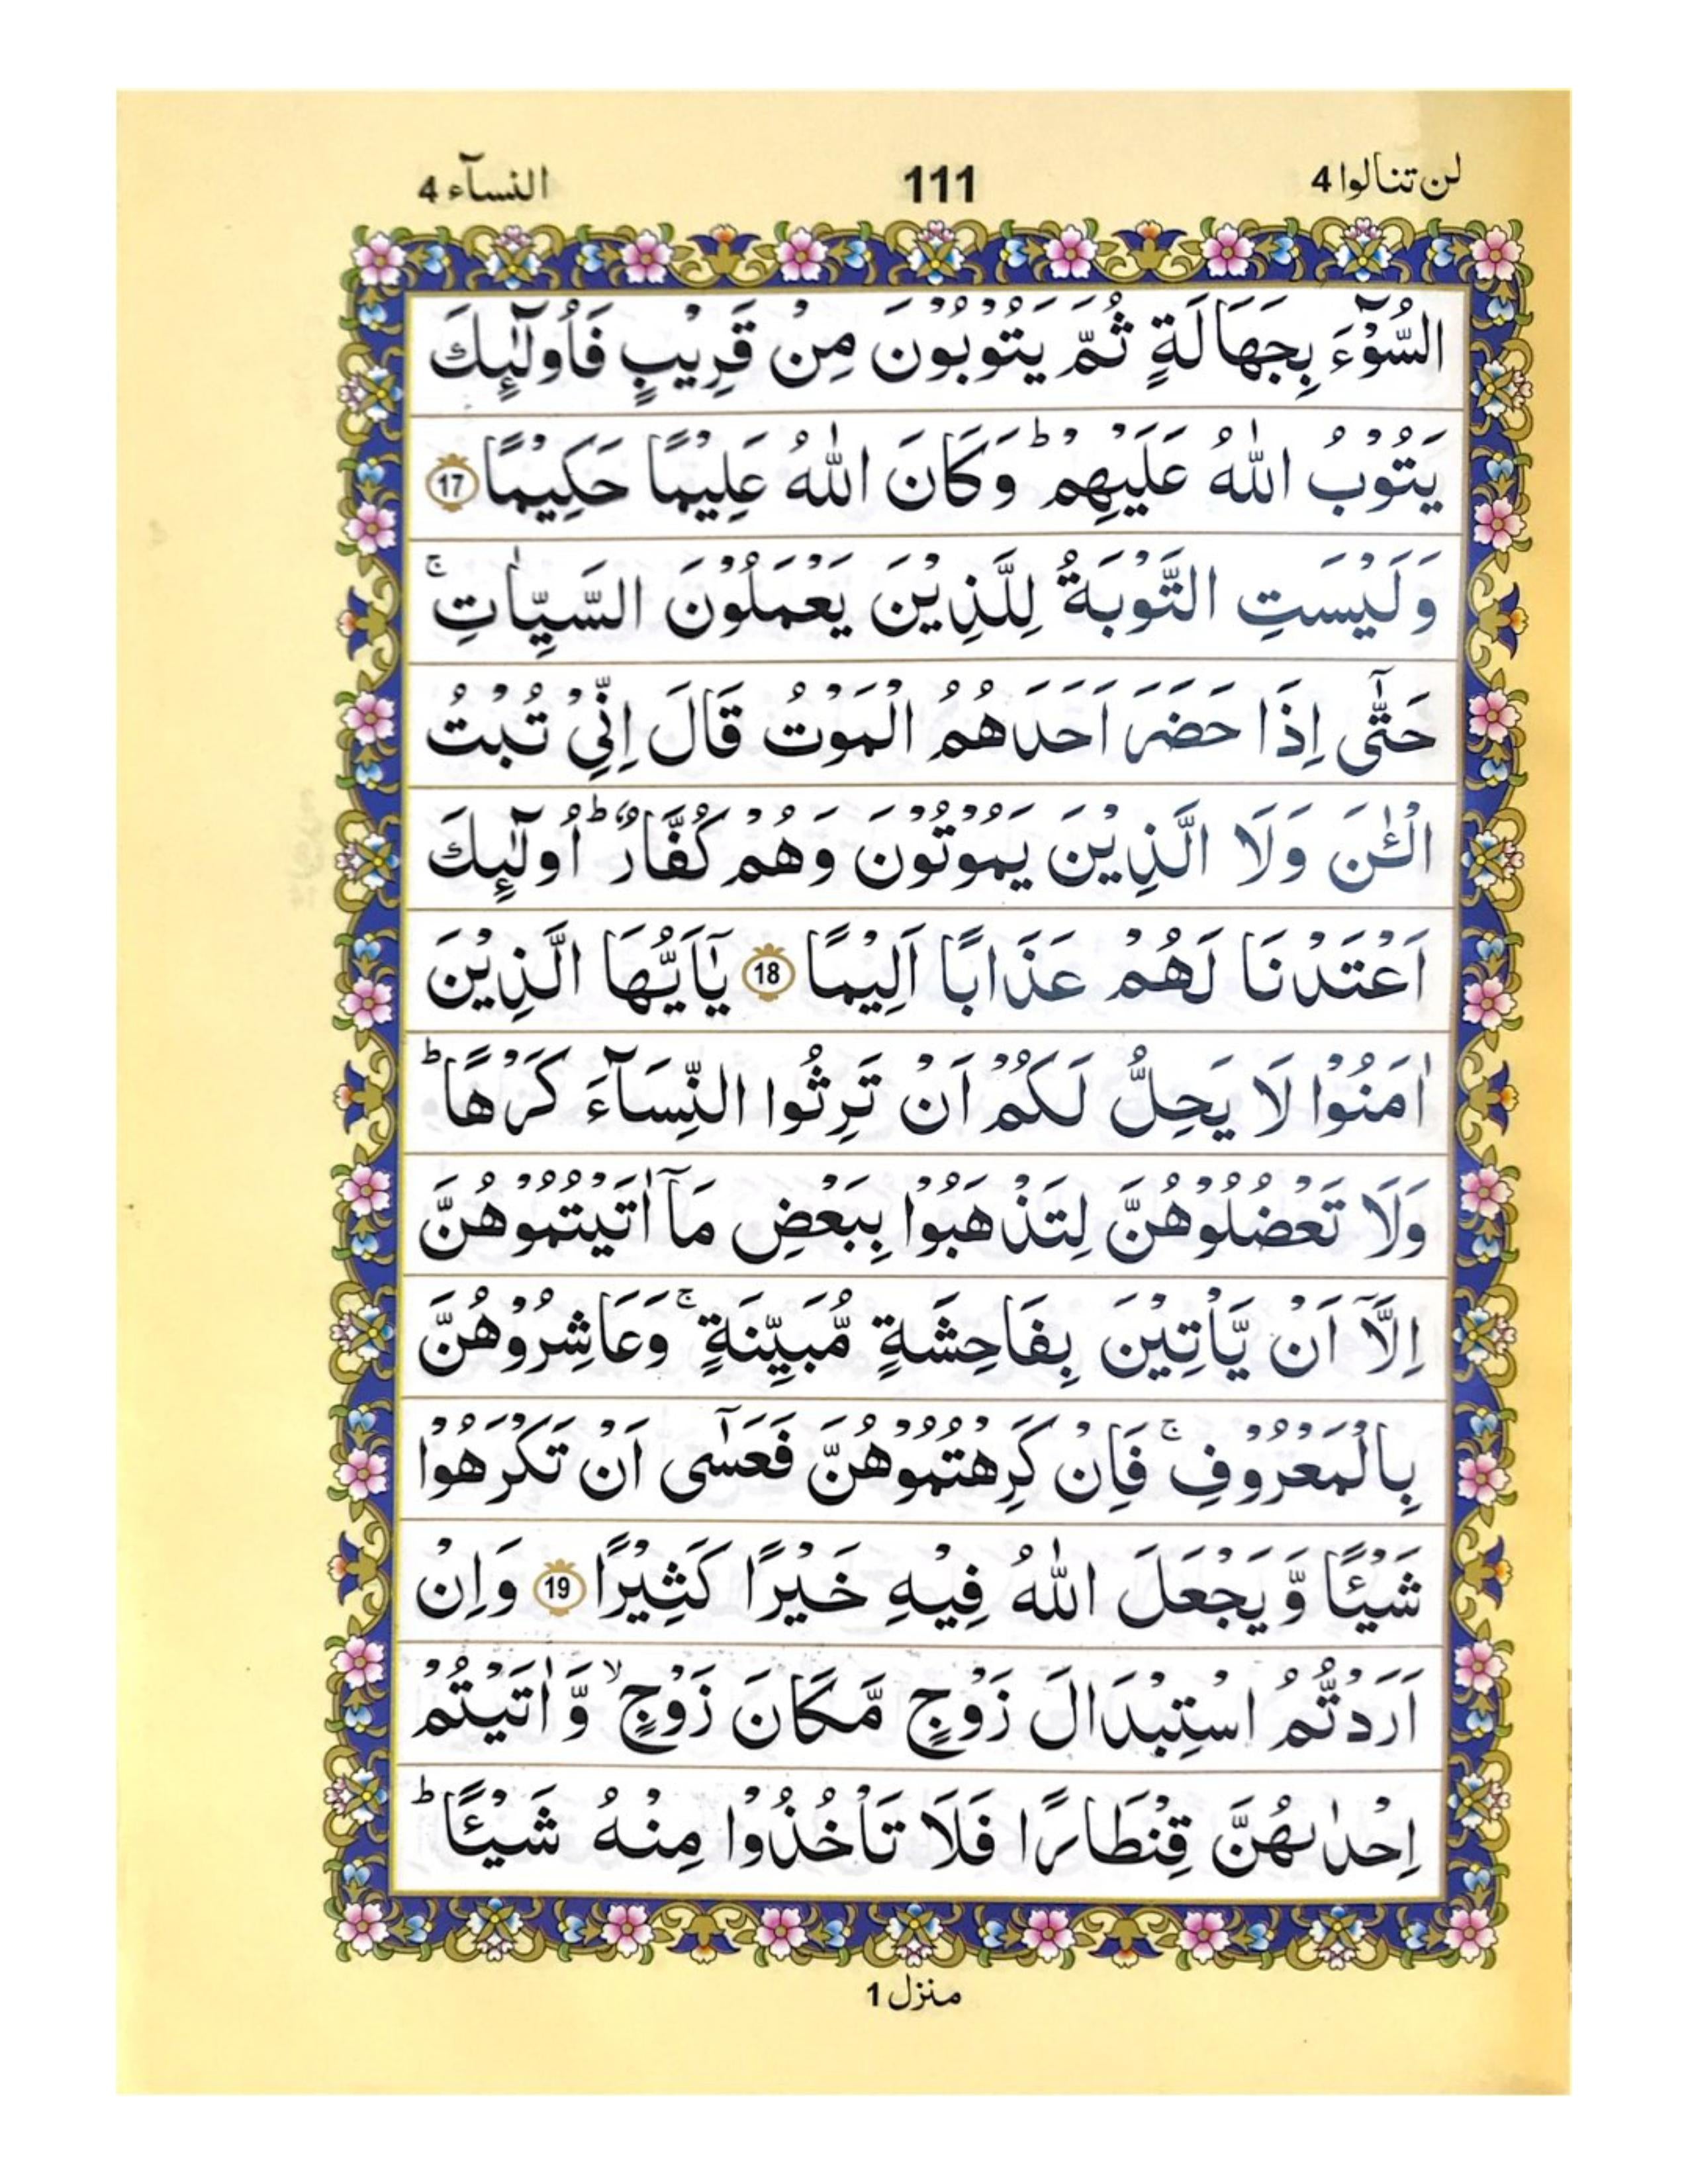 لن تنالوا 4
111
النسآء 4
السُّوْٓءَ بِجَهَالَةٍ ثُمَّ يَتُوْبُوْنَ مِنْ قَرِيْبٍ فَاُولٰٓئِكَ
يَتُوْبُ اللّٰهُ عَلَيْهِمْ ؕ وَكَانَ اللّٰهُ عَلِيْمًا حَكِيْمًا 17
وَلَيْسَتِ التَّوْبَةُ لِلَّذِيْنَ يَعْمَلُوْنَ السَّيِّاٰتِ ۚ
حَتّٰٓى اِذَا حَضَرَ اَحَدَهُمُ الْمَوْتُ قَالَ اِنِّيْ تُبْتُ
الْـٰٔنَ وَلَا الَّذِيْنَ يَمُوْتُوْنَ وَهُمْ كُفَّارٌ ؕ اُولٰٓئِكَ
اَعْتَدْنَا لَهُمْ عَذَابًا اَلِيْمًا 18 يٰٓاَيُّهَا الَّذِيْنَ
اٰمَنُوْا لَا يَحِلُّ لَكُمْ اَنْ تَرِثُوا النِّسَآءَ كَرْهًا ؕ
وَلَا تَعْضُلُوْهُنَّ لِتَذْهَبُوْا بِبَعْضِ مَآ اٰتَيْتُمُوْهُنَّ
اِلَّآ اَنْ يَّاْتِيْنَ بِفَاحِشَةٍ مُّبَيِّنَةٍ ۚ وَعَاشِرُوْهُنَّ
بِالْمَعْرُوْفِ ۚ فَاِنْ كَرِهْتُمُوْهُنَّ فَعَسٰٓى اَنْ تَكْرَهُوْا
شَيْـًٔا وَّيَجْعَلَ اللّٰهُ فِيْهِ خَيْرًا كَثِيْرًا 19 وَاِنْ
اَرَدْتُّمُ اسْتِبْدَالَ زَوْجٍ مَّكَانَ زَوْجٍ ۙ وَّاٰتَيْتُمْ
اِحْدٰىهُنَّ قِنْطَارًا فَلَا تَاْخُذُوْا مِنْهُ شَيْـًٔا ؕ
منزل 1